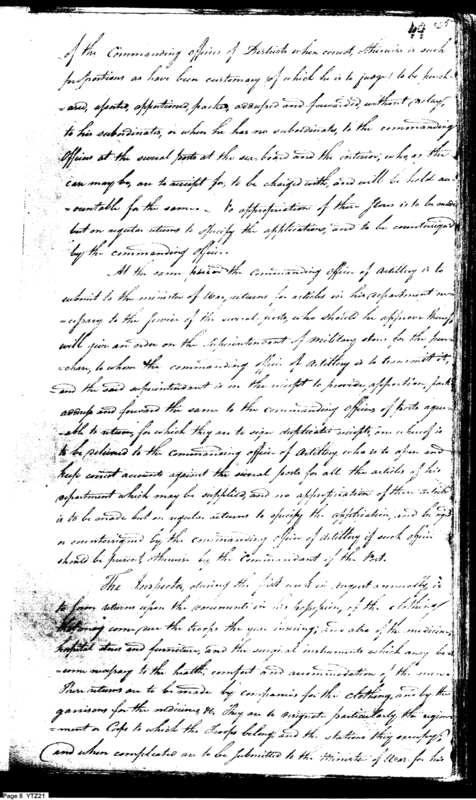 of the Commanding officers of Districts when correct, otherwise in such
proportions as have been customary (of which he is to judge) to be purch-
-ased, apportioned, packed, addressed and forwarded, without delay,
to his subordinates, or when he has no subordinates, to the commanding
Officers at the several posts at the sea board and the interior; who, as the
case may be, are to receipt for, to be charged with, and will be held ac-
-countable for the same. No appropriation of these Items is to be made
but on regular returns to specify the applications, and to be countersigned
by the commanding officer.
At the same period the commanding officer of Artillery is to
submit to the minister of War, returns for articles in his department ne-
-cessary to the service of the several posts, who should he approve them,
will give an order on the Superintendent of Military stores for the pur-
-chase, to whom the commanding officer of Artillery is to transmit it,
and the said superintendent is on the receipt to provide, apportion, pack
address and forward the same to the commanding officers of posts agree-
-able to return, for which they are to sign duplicate receipts, one whereof is
to be delivered to the Commanding officer of Artillery, who is to open and
keep correct accounts against the several posts for all the articles of his
department which may be supplied, and no appropriation of these articles
is to be made but on regular returns to specify the application, and be
countersigned by the commanding officer of artillery if such officer
should be present, otherwise by the Commandant of the Post.
The Inspector, during the first week in August annually, is
to form returns upon the documents in his possession, of the clothing
necessary for the troops the year ensuing; and also of the medicine,
hospital stores and furniture, and the surgical instruments which may be-
-come necessary to the health, comfort and accommodation of the men.
These returns are to be made by companies for the clothing, and by the
garrisons for the medicines, &c. They are to designate particularly the regi-
-ment or Corps to which the Troops belong, and the stations they occupy,
and when completed are to be submitted to the Minister of War for his
Page 8 YTZ21